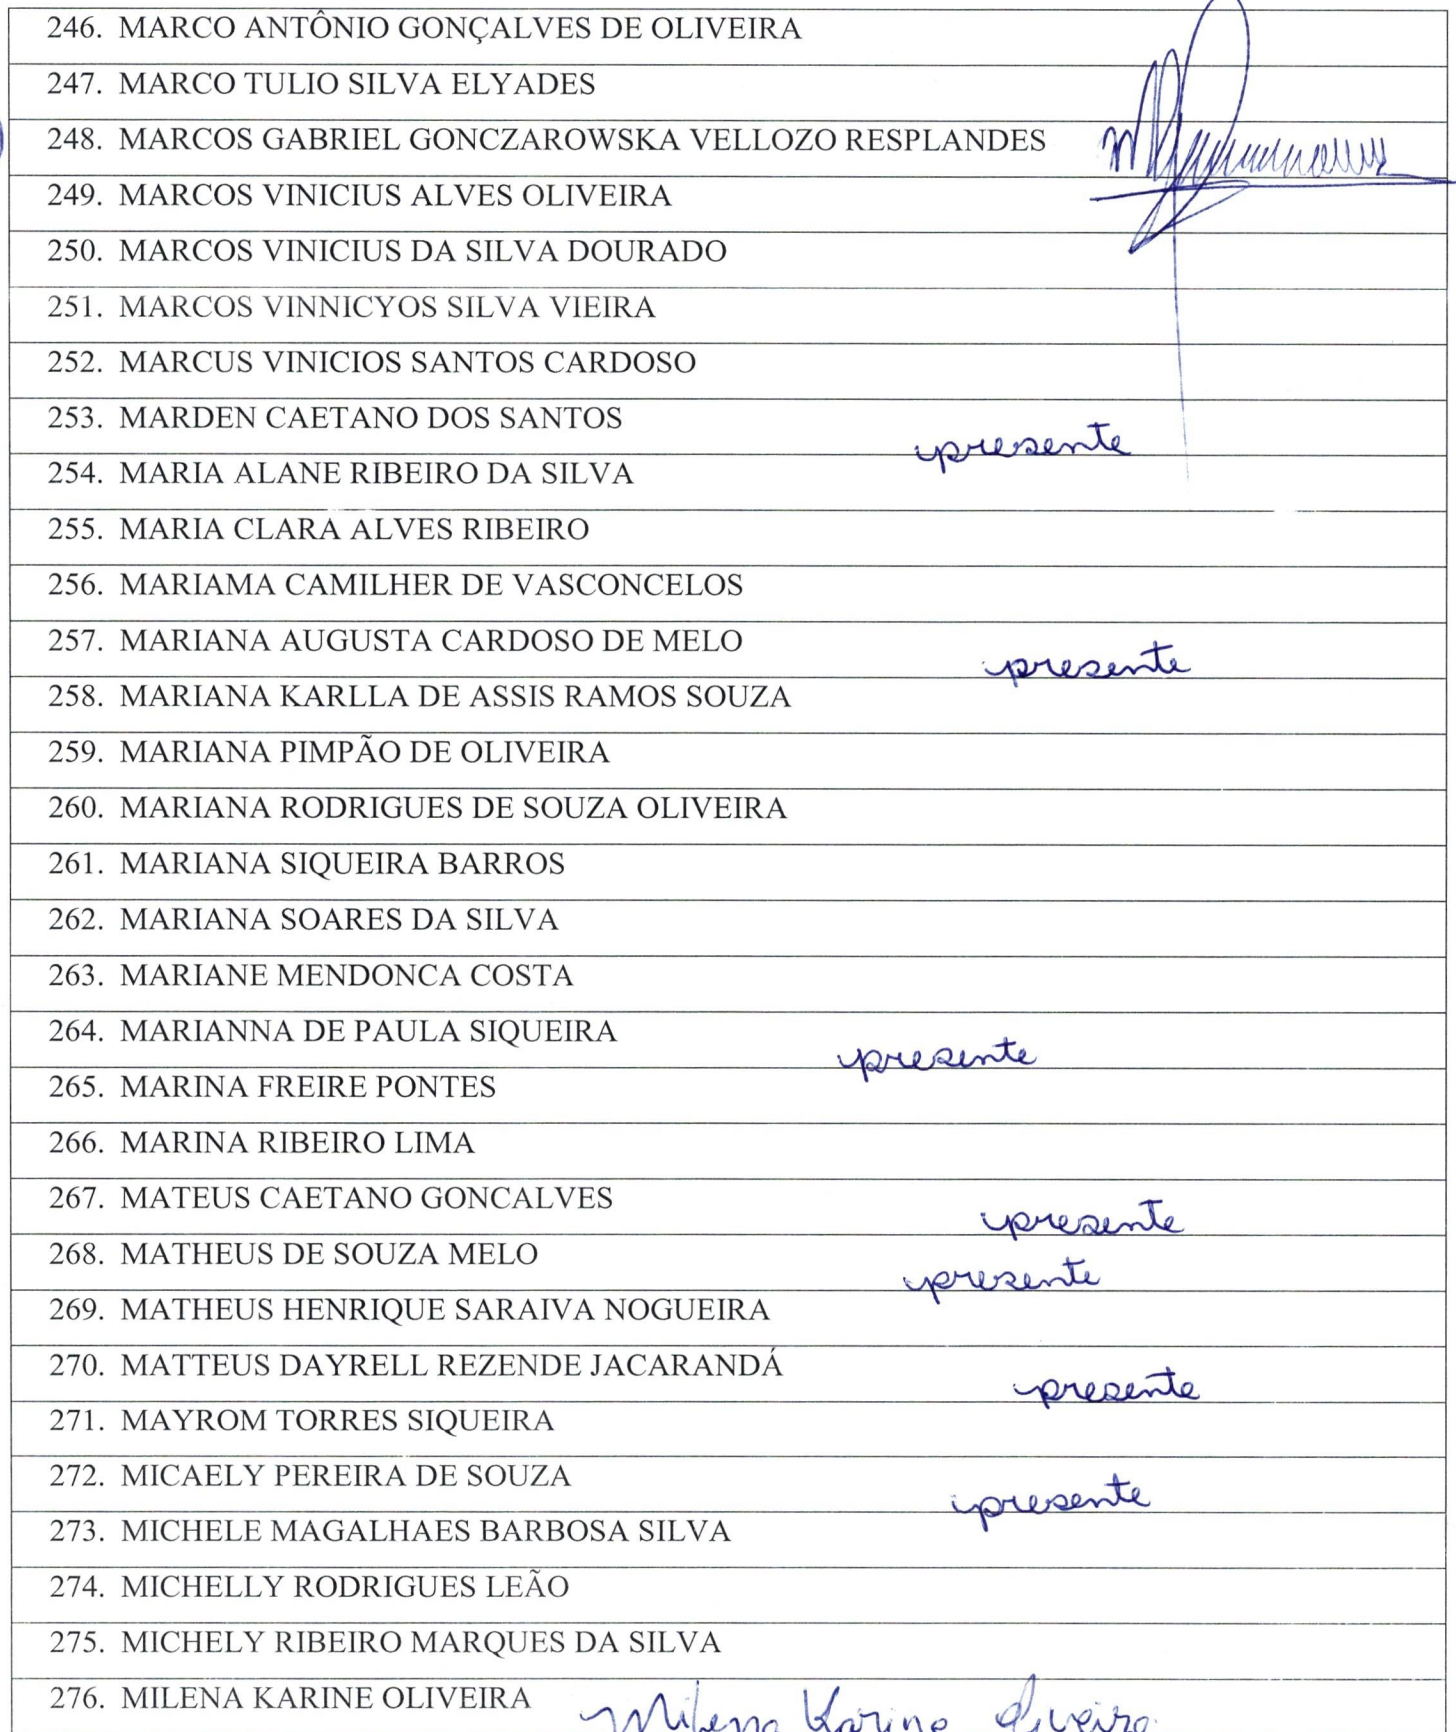 246. MARCO ANTÔNIO GONÇALVES DE OLIVEIRA
247. MARCO TULIO SILVA ELYADES
248. MARCOS GABRIEL GONCZAROWSKA VELLOZO RESPLANDES
249. MARCOS VINICIUS ALVES OLIVEIRA
250. MARCOS VINICIUS DA SILVA DOURADO
251. MARCOS VINNICYOS SILVA VIEIRA
252. MARCUS VINICIOS SANTOS CARDOSO
253. MARDEN CAETANO DOS SANTOS presente
254. MARIA ALANE RIBEIRO DA SILVA
255. MARIA CLARA ALVES RIBEIRO
256. MARIAMA CAMILHER DE VASCONCELOS
257. MARIANA AUGUSTA CARDOSO DE MELO presente
258. MARIANA KARLLA DE ASSIS RAMOS SOUZA
259. MARIANA PIMPÃO DE OLIVEIRA
260. MARIANA RODRIGUES DE SOUZA OLIVEIRA
261. MARIANA SIQUEIRA BARROS
262. MARIANA SOARES DA SILVA
263. MARIANE MENDONCA COSTA
264. MARIANNA DE PAULA SIQUEIRA presente
265. MARINA FREIRE PONTES
266. MARINA RIBEIRO LIMA
267. MATEUS CAETANO GONCALVES presente
268. MATHEUS DE SOUZA MELO presente
269. MATHEUS HENRIQUE SARAIVA NOGUEIRA
270. MATTEUS DAYRELL REZENDE JACARANDÁ presente
271. MAYROM TORRES SIQUEIRA
272. MICAELY PEREIRA DE SOUZA presente
273. MICHELE MAGALHAES BARBOSA SILVA
274. MICHELLY RODRIGUES LEÃO
275. MICHELY RIBEIRO MARQUES DA SILVA
276. MILENA KARINE OLIVEIRA Milena Karine Oliveira